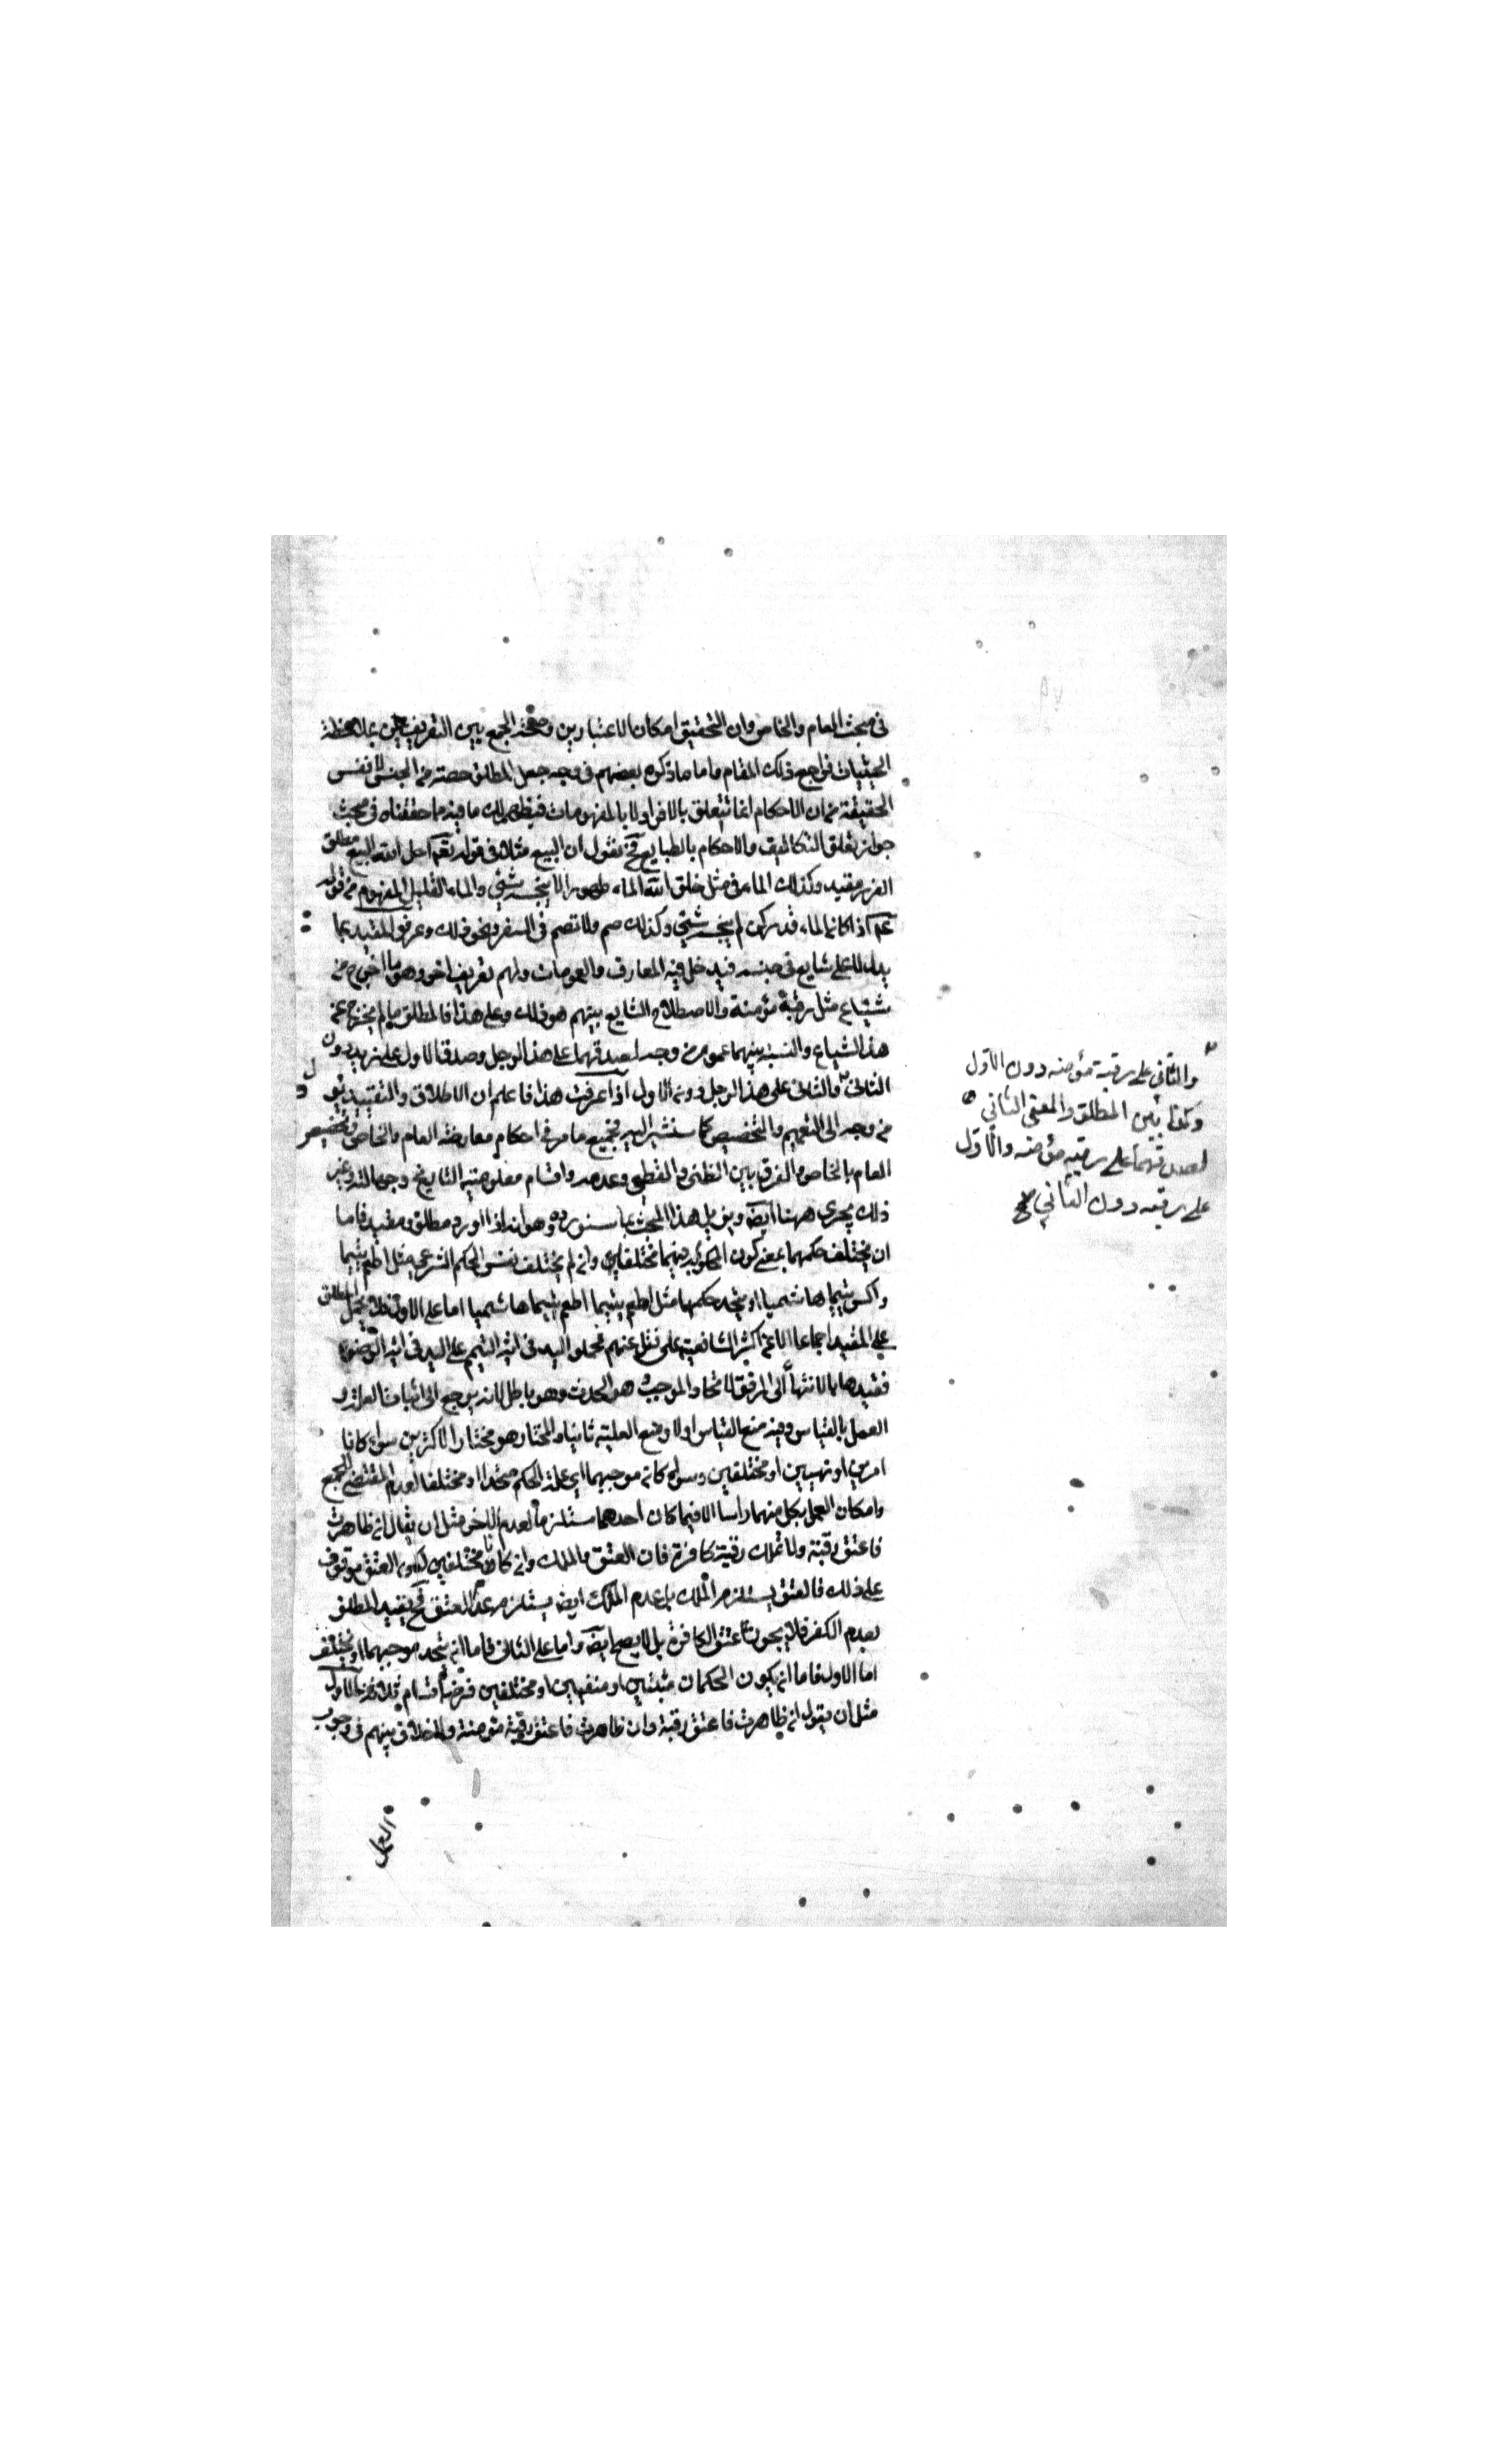 في مبحث العام والخاص وان التحقيق امكان الاعتبارين وصحة الجمع بين التعريفين بملاحظة
الحيثيات فراجع ذلك المقام واما ما ذكره بعضهم في وجه جعل المطلق حصته من الجنس لا نفس
الحقيقة من ان الاحكام انما تتعلق بالافراد لا بالمفهومات فيظهر لك ما فيه مما حققناه في مبحث
جواز تعلق التكاليف والاحكام بالطبايع فح نقول ان البيع مثلا في قوله تعم احل الله البيع مطلق
الغرر مقيد وكذلك الماء في مثل خلق الله الماء طهورا لا ينجسه شئ والماء القليل المفهوم من قوله
عم اذا كان الماء قدر كر لم ينجسه شئ وكذلك صم ولا تصم في السفر ونحو ذلك وعرفوا المقيد بما
يدل لا على شايع في جنسه فيدخل فيه المعارف والعمومات ولهم تعريف اخر وهو ما اخرج من
شياع مثل رقبة مؤمنة والاصطلاح الشايع بينهم هو ذلك وعلى هذا فالمطلق ما لم يخرج عن
هذا الشياع والنسبة بينهما عموم من وجه لصدقهما على هذا الرجل وصدق الاول على زيد دون
الثاني والثاني على هذا الرجل دون الاول اذا عرفت هذا فاعلم ان الاطلاق والتقييد يؤول
من وجه الى التعميم والتخصيص كما سنشير اليه فجميع ما مر في احكام معارضة العام والخاص وتخصيص
العام بالخاص والفرق بين الظني والقطعي وعدمه واقسام معلومية التاريخ وجهالته وغير
ذلك يجري ههنا ايضا ويزيد هذا المبحث بما سنورده وهو انه اذا ورد مطلق ومقيد فاما
ان يختلف حكمهما بمعنى كون المحكوم به فيهما مختلفين وان لم يختلف نفس الحكم الشرعي مثل اطعم يتيما
واكس يتيما هاشميا او يتحد حكمهما مثل اطعم يتيما اطعم يتيما هاشميا اما على الاول فلا يحمل المطلق
على المقيد اجماعا الا عن اكثر الشافعية على نقل عنهم فحملوا اليد في اية التيمم على اليد في اية الوضوء
فقيدها بالانتهاء الى المرفق لاتحاد الموجب وهو الحدث وهو باطل لانه يرجع الى اثبات العلة و
العمل بالقياس وفيه منع القياس اولا ومنع العلية ثانيا والمختار هو مختار الاكثرين سواء كانا
امرين او نهيين او مختلفين وسواء كان موجبهما اي علة الحكم متحدا او مختلفا لعدم المقتضي للجمع
وامكان العمل بكل منهما راسا الا فيما كان احدهما مستلزما لعدم الاخر مثل ان يقال ان ظاهرت
فاعتق رقبة ولا تملك رقبة كافرة فان العتق والملك وان كانا مختلفين لكن العتق موقوف
على ذلك فالعتق يستلزم الملك بل عدم الملك ايضا يستلزم عدم العتق فح يقيد المطلق
بعدم الكفر فلا يجوز عتق الكافرة بل لا يصح ايضا واما على الثاني فاما ان يتحد موجبهما او يختلف
اما الاول فاما ان يكون الحكمان مثبتين او منفيين او مختلفين فهنا اقسام ثلاثة الاول
مثل ان يقول ان ظاهرت فاعتق رقبة وان ظاهرت فاعتق رقبة مؤمنة ولا خلاف بينهم في وجوب
العمل
والثاني على رقبة مؤمنة دون الاول
وكذا بين المطلق والمعنى الثاني
لصدقهما على رقبة مؤمنة والاول
على رقبة دون الثاني صح